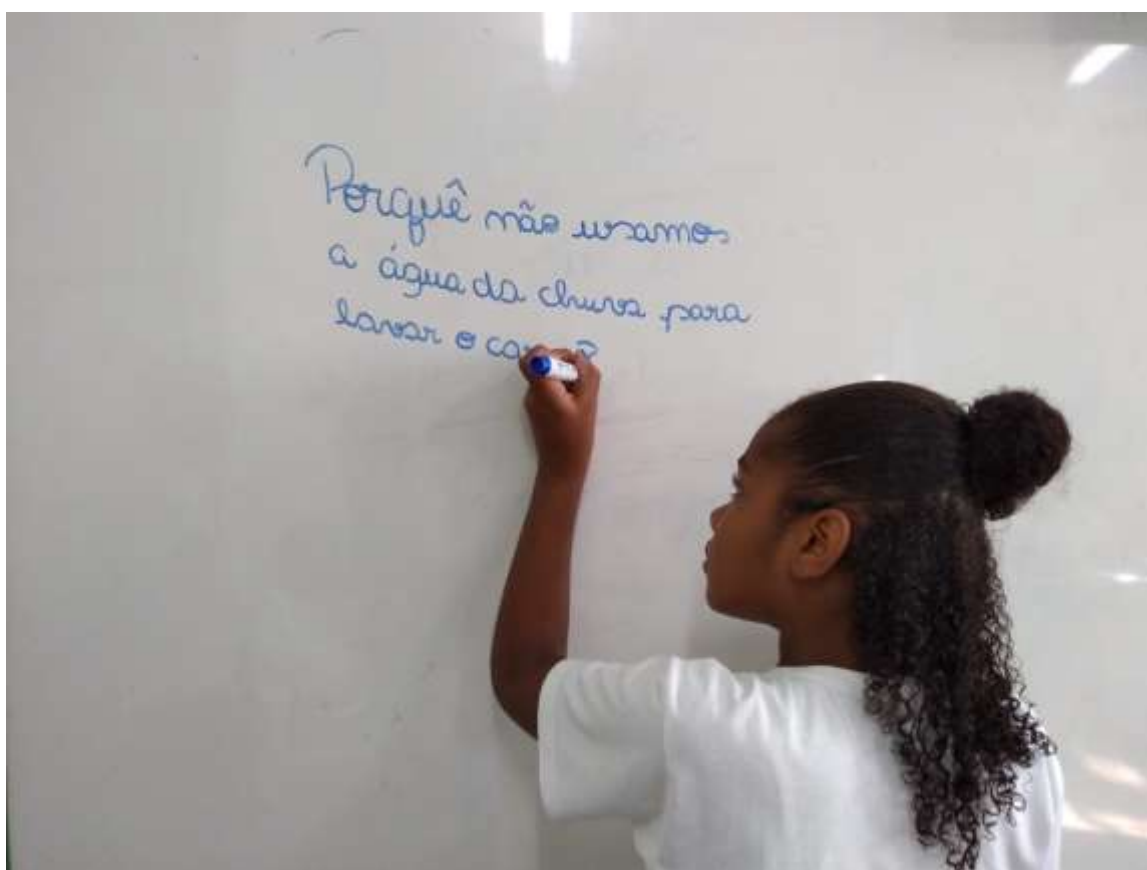 Porquê não usamos
a água da chuva para
lavar o